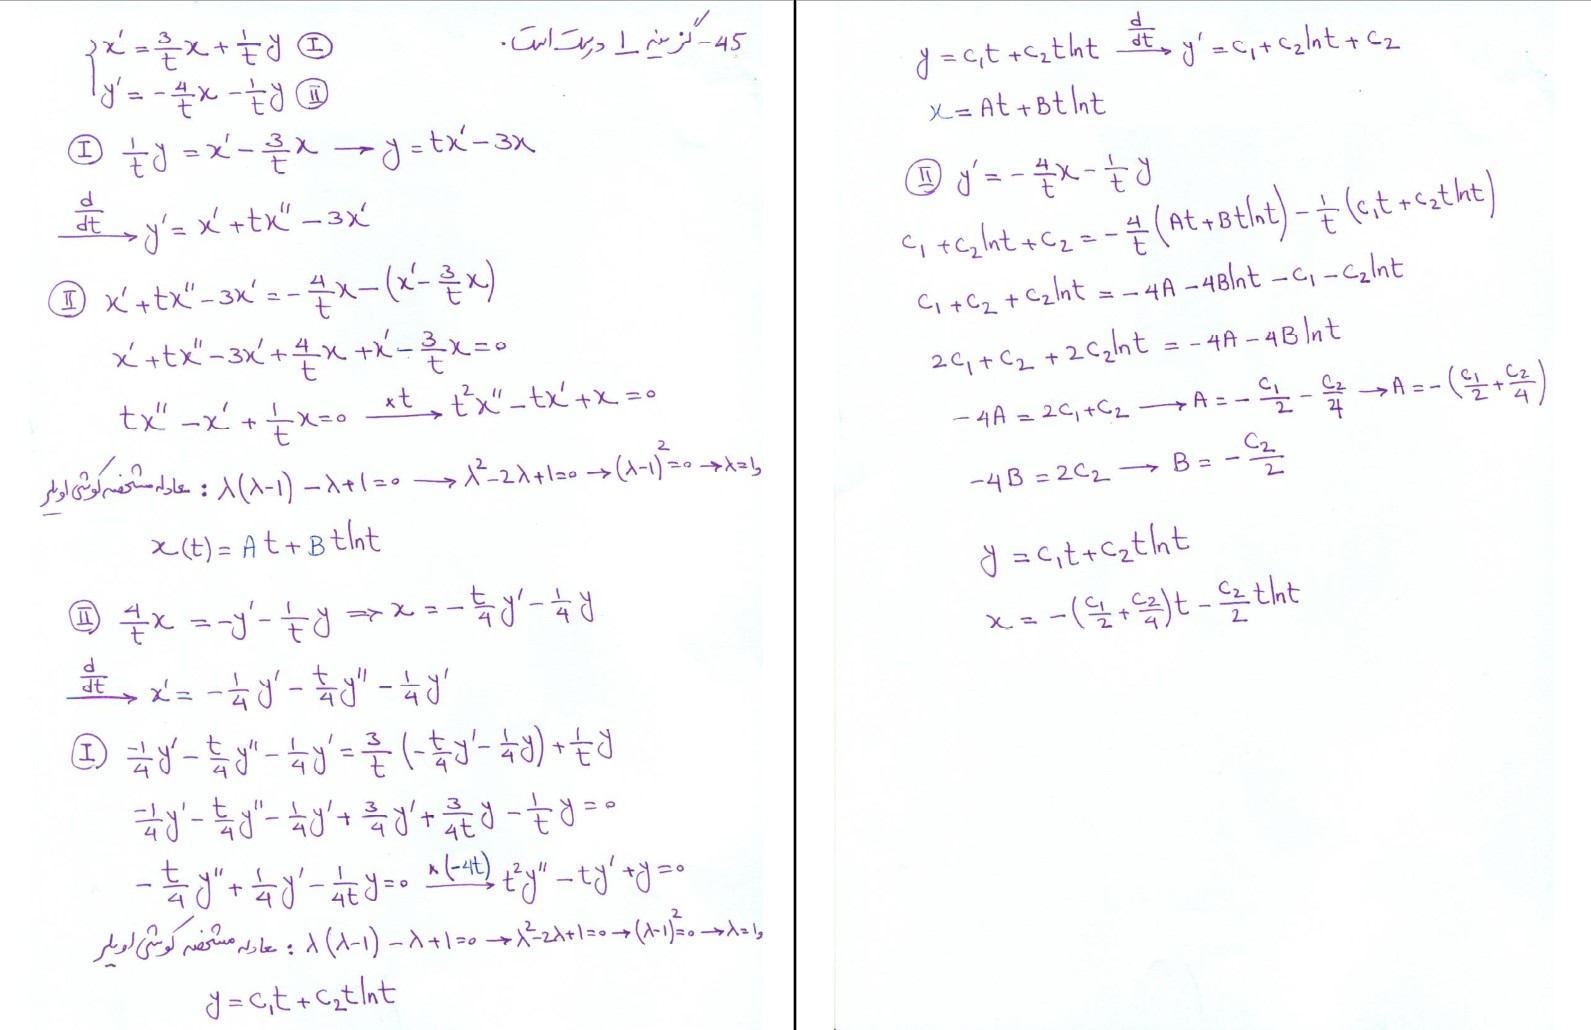 45- گزینه 1 درست است.
{ x' = 3/t x + 1/t y Ⓘ
y' = -4/t x - 1/t y Ⓘ︎Ⓘ
Ⓘ 1/t y = x' - 3/t x → y = tx' - 3x
d/dt → y' = x' + tx'' - 3x'
Ⅱ x' + tx'' - 3x' = -4/t x - (x' - 3/t x)
x' + tx'' - 3x' + 4/t x + x' - 3/t x = 0
tx'' - x' + 1/t x = 0 ×t → t²x'' - tx' + x = 0
معادله مشخصه کوشی اویلر : λ(λ-1) - λ + 1 = 0 → λ² - 2λ + 1 = 0 → (λ-1)² = 0 → λ = 1,
x(t) = At + Bt ln t
Ⅱ 4/t x = -y' - 1/t y ⇒ x = -t/4 y' - 1/4 y
d/dt → x' = -1/4 y' - t/4 y'' - 1/4 y'
Ⓘ -1/4 y' - t/4 y'' - 1/4 y' = 3/t (-t/4 y' - 1/4 y) + 1/t y
-1/4 y' - t/4 y'' - 1/4 y' + 3/4 y' + 3/4t y - 1/t y = 0
-t/4 y'' + 1/4 y' - 1/4t y = 0 ×(-4t) → t²y'' - ty' + y = 0
معادله مشخصه کوشی اویلر : λ(λ-1) - λ + 1 = 0 → λ² - 2λ + 1 = 0 → (λ-1)² = 0 → λ = 1,
y = c₁t + c₂t ln t
y = c₁t + c₂t ln t d/dt → y' = c₁ + c₂ ln t + c₂
x = At + Bt ln t
Ⅱ y' = -4/t x - 1/t y
c₁ + c₂ ln t + c₂ = -4/t (At + Bt ln t) - 1/t (c₁t + c₂t ln t)
c₁ + c₂ + c₂ ln t = -4A - 4B ln t - c₁ - c₂ ln t
2c₁ + c₂ + 2c₂ ln t = -4A - 4B ln t
-4A = 2c₁ + c₂ → A = -c₁/2 - c₂/4 → A = -(c₁/2 + c₂/4)
-4B = 2c₂ → B = -c₂/2
y = c₁t + c₂t ln t
x = -(c₁/2 + c₂/4)t - c₂/2 t ln t